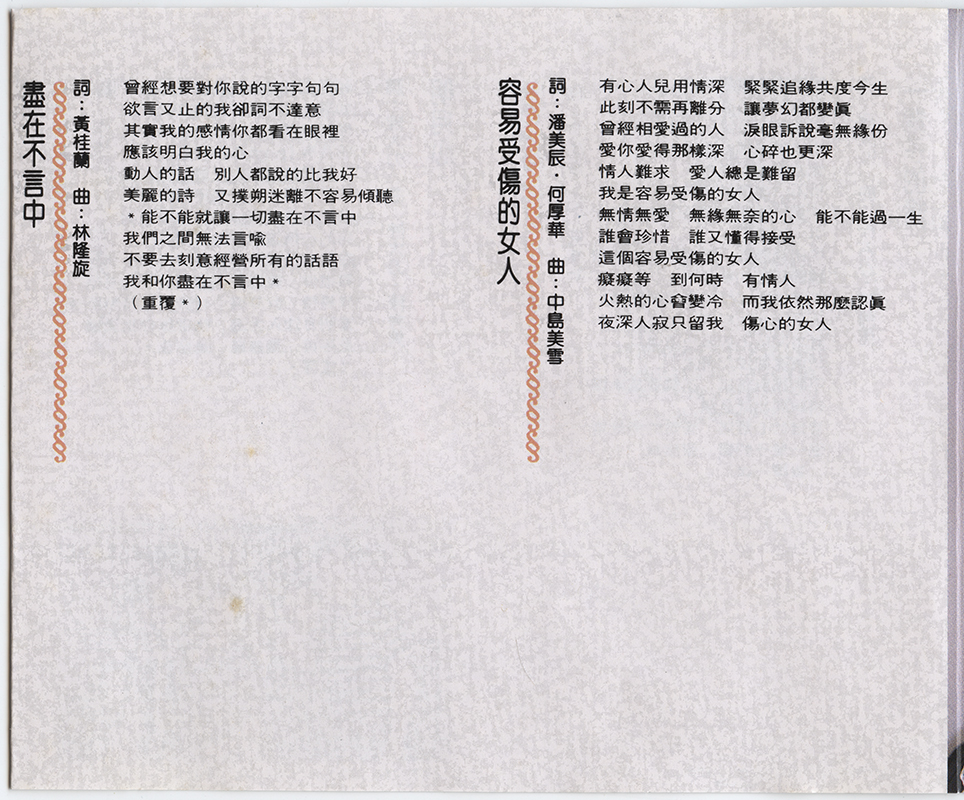 盡在不言中
詞：黃桂蘭　曲：林隆旋
曾經想要對你說的字字句句
欲言又止的我卻詞不達意
其實我的感情你都看在眼裡
應該明白我的心
動人的話　別人都說的比我好
美麗的詩　又撲朔迷離不容易傾聽
＊能不能就讓一切盡在不言中
我們之間無法言喻
不要去刻意經營所有的話語
我和你盡在不言中＊
（重覆＊）
容易受傷的女人
詞：潘美辰・何厚華　曲：中島美雪
有心人兒用情深　緊緊追緣共度今生
此刻不需再離分　讓夢幻都變眞
曾經相愛過的人　淚眼訴說毫無緣份
愛你愛得那樣深　心碎也更深
情人難求　愛人總是難留
我是容易受傷的女人
無情無愛　無緣無奈的心　能不能過一生
誰會珍惜　誰又懂得接受
這個容易受傷的女人
癡癡等　到何時　有情人
火熱的心會變冷　而我依然那麼認眞
夜深人寂只留我　傷心的女人